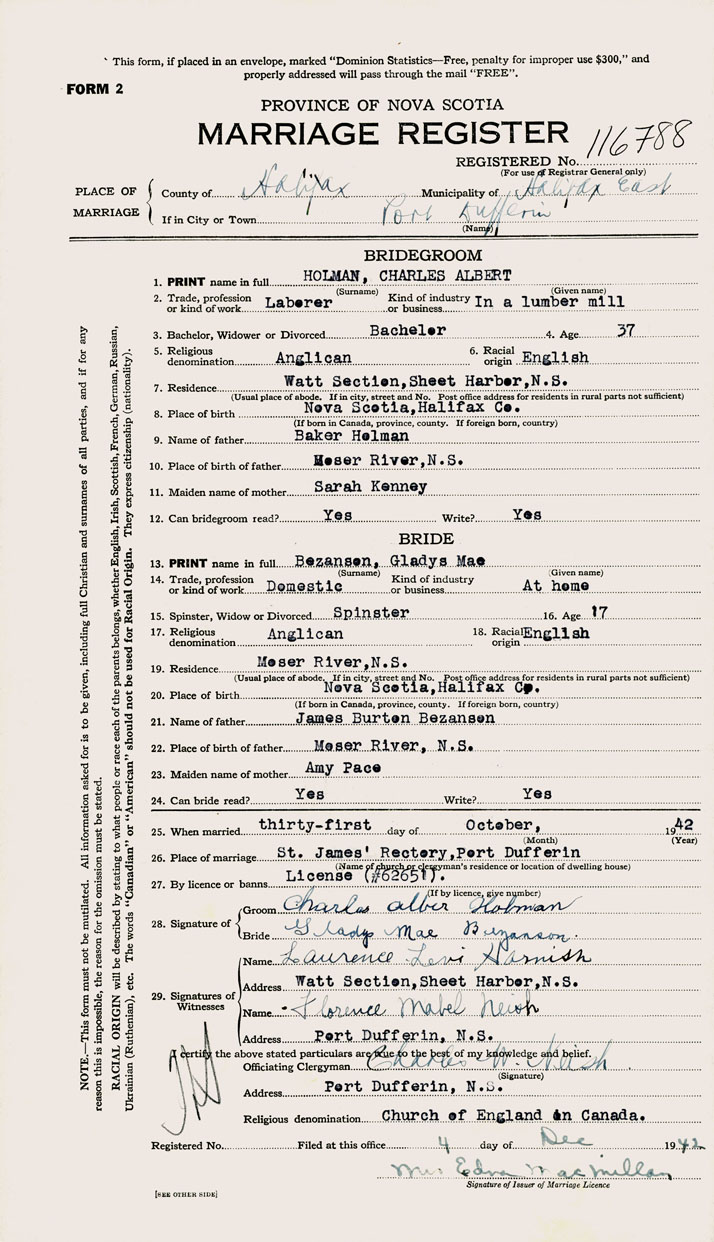 This form, if placed in an envelope, marked "Dominion Statistics—Free, penalty for improper use $300," and
properly addressed will pass through the mail "FREE".
FORM 2
PROVINCE OF NOVA SCOTIA
MARRIAGE REGISTER
REGISTERED No. 116788
(For use of Registrar General only)
PLACE OF MARRIAGE
County of Halifax Municipality of Halifax East
If in City or Town Port Dufferin
(Name)
BRIDEGROOM
1. PRINT name in full HOLMAN, CHARLES ALBERT
(Surname) (Given name)
2. Trade, profession or kind of work Laborer Kind of industry or business In a lumber mill
3. Bachelor, Widower or Divorced Bachelor 4. Age 37
5. Religious denomination Anglican 6. Racial origin English
7. Residence Watt Section,Sheet Harbor,N.S.
(Usual place of abode. If in city, street and No. Post office address for residents in rural parts not sufficient)
8. Place of birth Nova Scotia,Halifax Co.
(If born in Canada, province, county. If foreign born, country)
9. Name of father Baker Holman
10. Place of birth of father Moser River,N.S.
11. Maiden name of mother Sarah Kenney
12. Can bridegroom read? Yes Write? Yes
BRIDE
13. PRINT name in full Bezanson, Gladys Mae
(Surname) (Given name)
14. Trade, profession or kind of work Domestic Kind of industry or business At home
15. Spinster, Widow or Divorced Spinster 16. Age 17
17. Religious denomination Anglican 18. Racial origin English
19. Residence Moser River,N.S.
(Usual place of abode. If in city, street and No. Post office address for residents in rural parts not sufficient)
20. Place of birth Nova Scotia,Halifax Co.
(If born in Canada, province, county. If foreign born, country)
21. Name of father James Burton Bezanson
22. Place of birth of father Moser River, N.S.
23. Maiden name of mother Amy Pace
24. Can bride read? Yes Write? Yes
25. When married thirty-first day of October, 1942
(Month) (Year)
26. Place of marriage St. James' Rectory,Port Dufferin
(Name of church or clergyman's residence or location of dwelling house)
27. By licence or banns License (#62651).
(If by licence, give number)
28. Signature of
Groom Charles Alber Holman
Bride Gladys Mae Bezanson.
29. Signatures of Witnesses
Name Laurence Levi Harnish
Address Watt Section,Sheet Harbor,N.S.
Name Florence Mabel Neish
Address Port Dufferin, N.S.
I certify the above stated particulars are true to the best of my knowledge and belief.
Officiating Clergyman Charles W. Neish
(Signature)
Address Port Dufferin, N.S.
Religious denomination Church of England in Canada.
Registered No. Filed at this office 4 day of Dec 1942
Mrs Edna MacMillan
Signature of Issuer of Marriage Licence
[SEE OTHER SIDE]
NOTE.—This form must not be mutilated. All information asked for is to be given, including full Christian and surnames of all parties, and if for any
reason this is impossible, the reason for the omission must be stated.
RACIAL ORIGIN will be described by stating to what people or race each of the parents belongs, whether English, Irish, Scottish, French, German, Russian,
Ukrainian (Ruthenian), etc. The words "Canadian" or "American" should not be used for Racial Origin. They express citizenship (nationality).